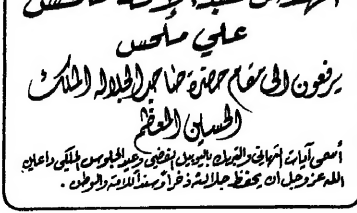 المهندس عبد الإله
علي ملحس
يرفعون الى مقام حضرة صاحب الجلاله الملك
الحسين المعظم
أسمى آيات التهاني والتبريك باليوبيل الفضي وعيد الجلوس الملكي داعين
الله عز وجل ان يحفظ جلالته ذخراً وسنداً للامة والوطن .